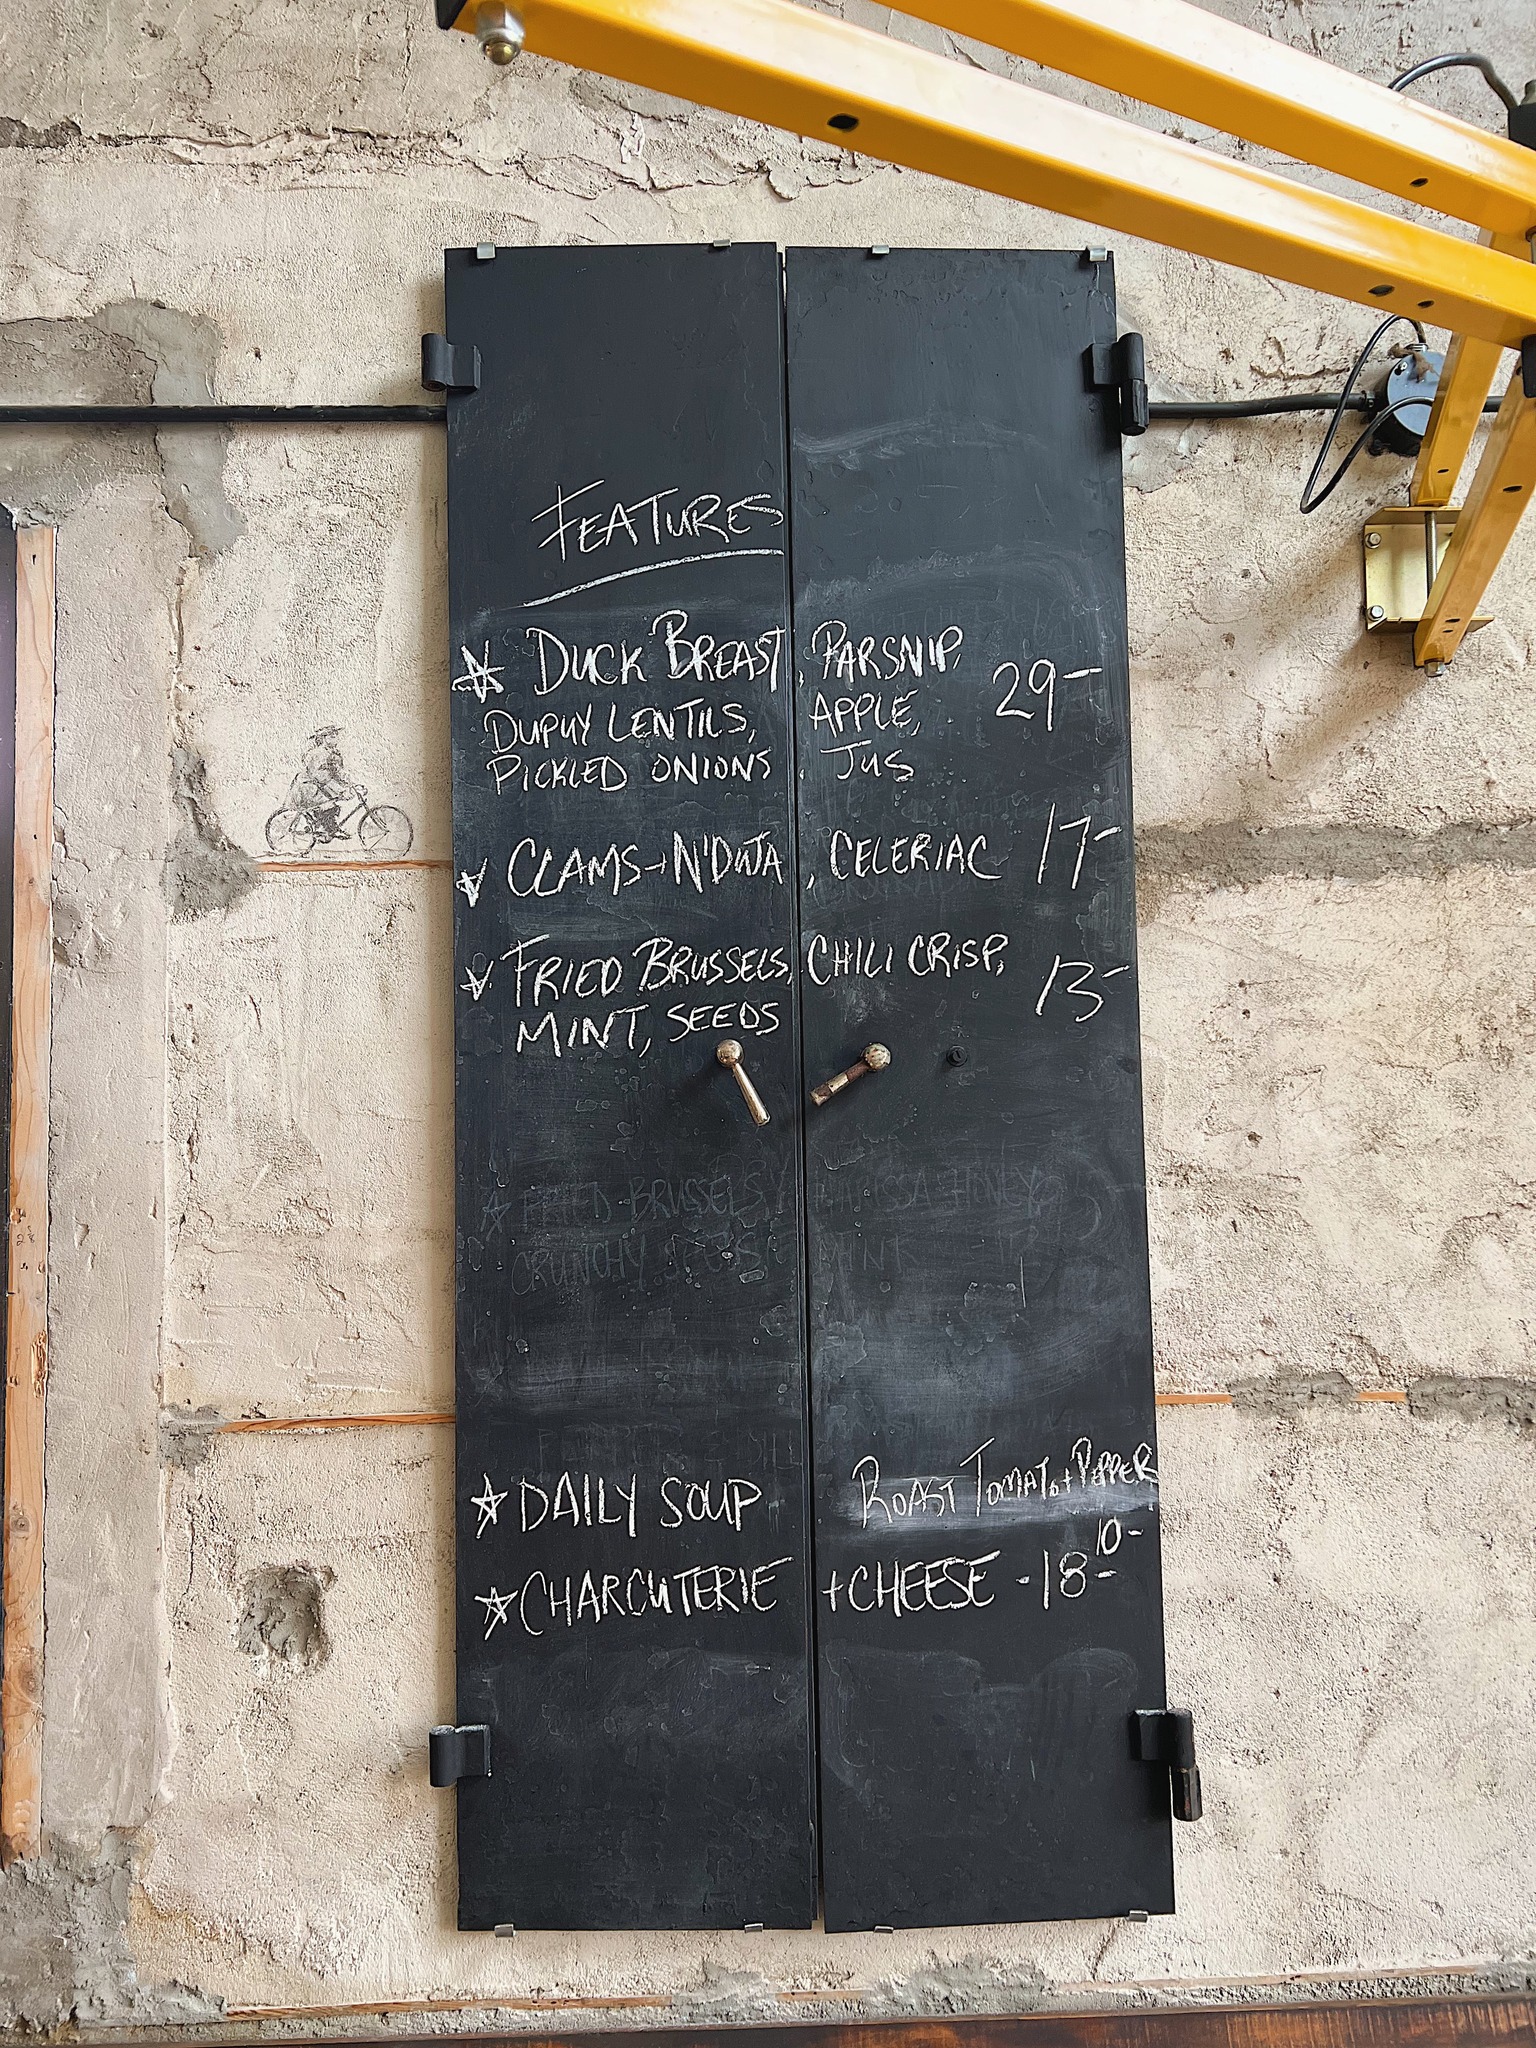 FEATURES
DUCK BREAST, PARSNIP, 29-
DUPUY LENTILS, APPLE,
PICKLED ONIONS, JUS
CLAMS → N'DUJA, CELERIAC 17-
FRIED BRUSSELS, CHILI CRISP, 13-
MINT, SEEDS
FRIED BRUSSELS, HONEY
CRUNCHY
DAILY SOUP ROAST TOMATO + PEPPER
10-
CHARCUTERIE + CHEESE - 18-